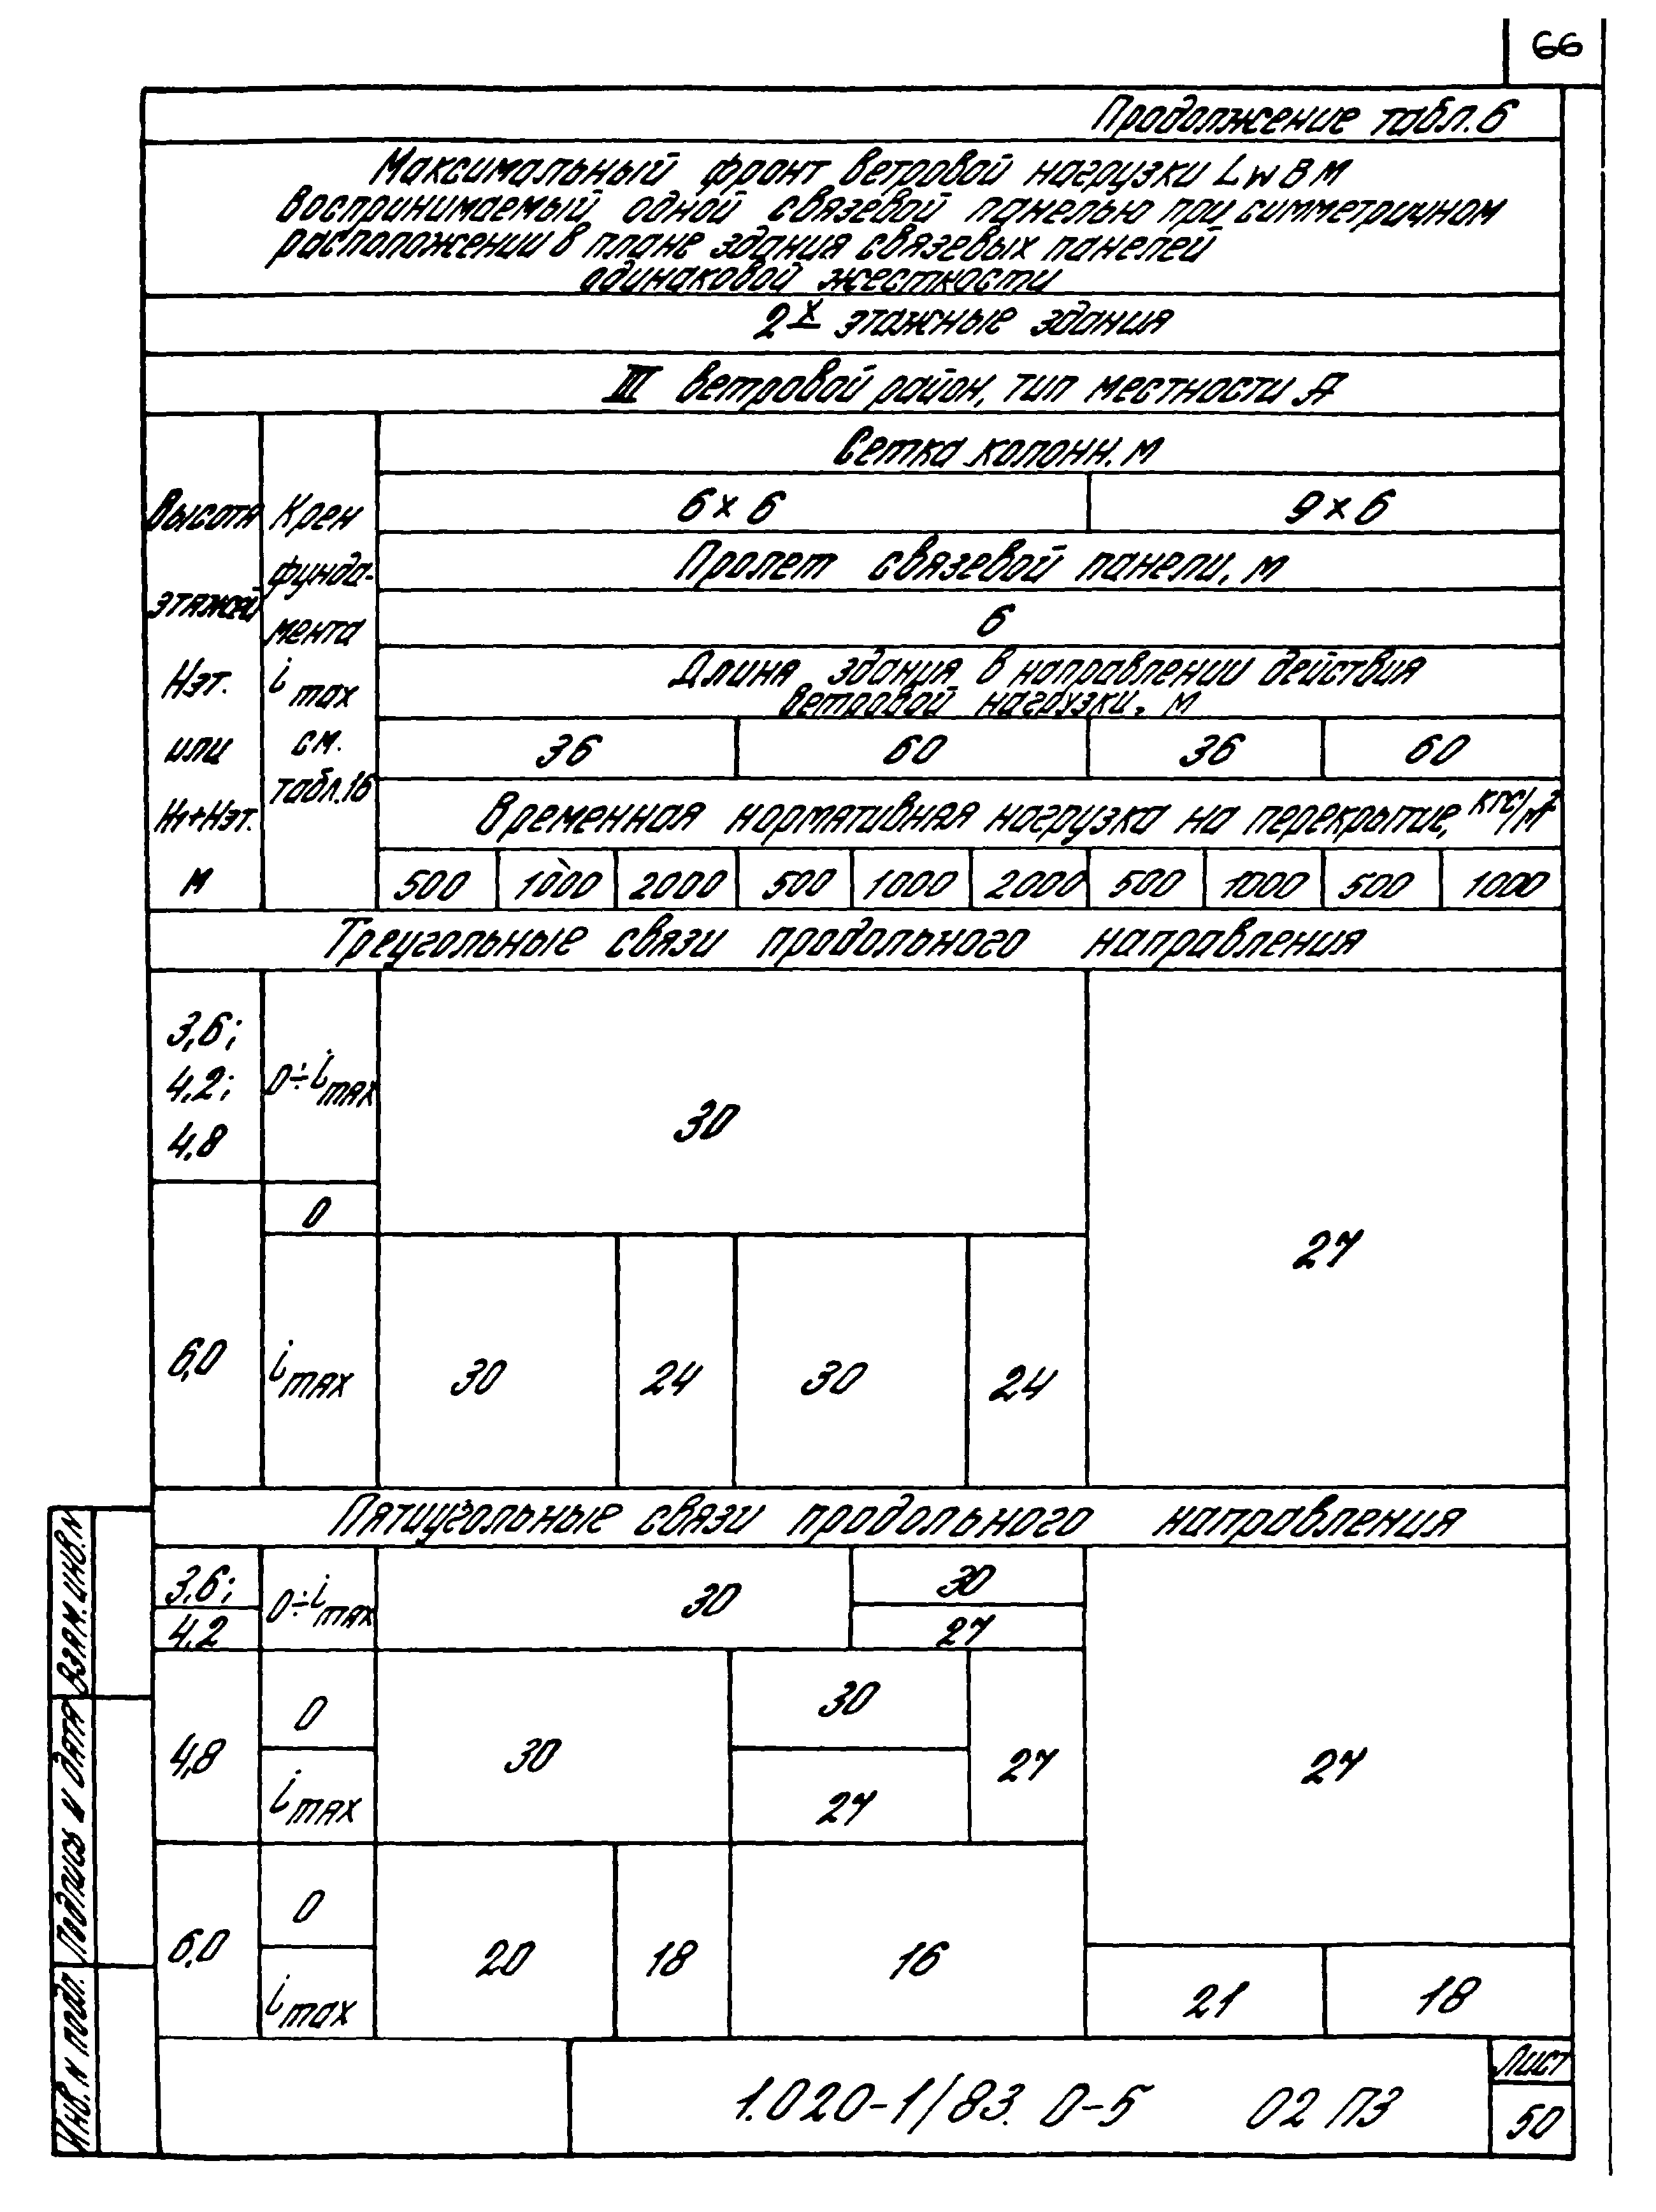 66
Продолжение табл.6
Максимальный фронт ветровой нагрузки Lw в м
воспринимаемый одной связевой панелью при симметричном
расположении в плане здания связевых панелей
одинаковой жесткости
2х этажные здания
III ветровой район, тип местности А
Сетка колонн. м
6 × 6
9 × 6
Пролет связевой панели, м
6
Длина здания в направлении действия
ветровой нагрузки, м
36 60 36 60
Временная нормативная нагрузка на перекрытие, кгс/м²
500 1000 2000 500 1000 2000 500 1000 500 1000
Высота
этажей
Нэт.
или
Н1+Нэт.
м
Крен
фунда-
мента
i max
см.
табл.16
Треугольные связи продольного направления
3,6;
4,2;
4,8
0÷imax
30
27
6,0
0
imax
30 24 30 24
Пятиугольные связи продольного направления
3.6;
4.2
0÷imax
30
30
27
27
4,8
0
imax
30
30
27
27
6,0
0
imax
20 18 16
21 18
Взам. инв. N
Подпись и дата
Инв. N подл.
1.020-1/83. 0-5 02 ПЗ
Лист
50